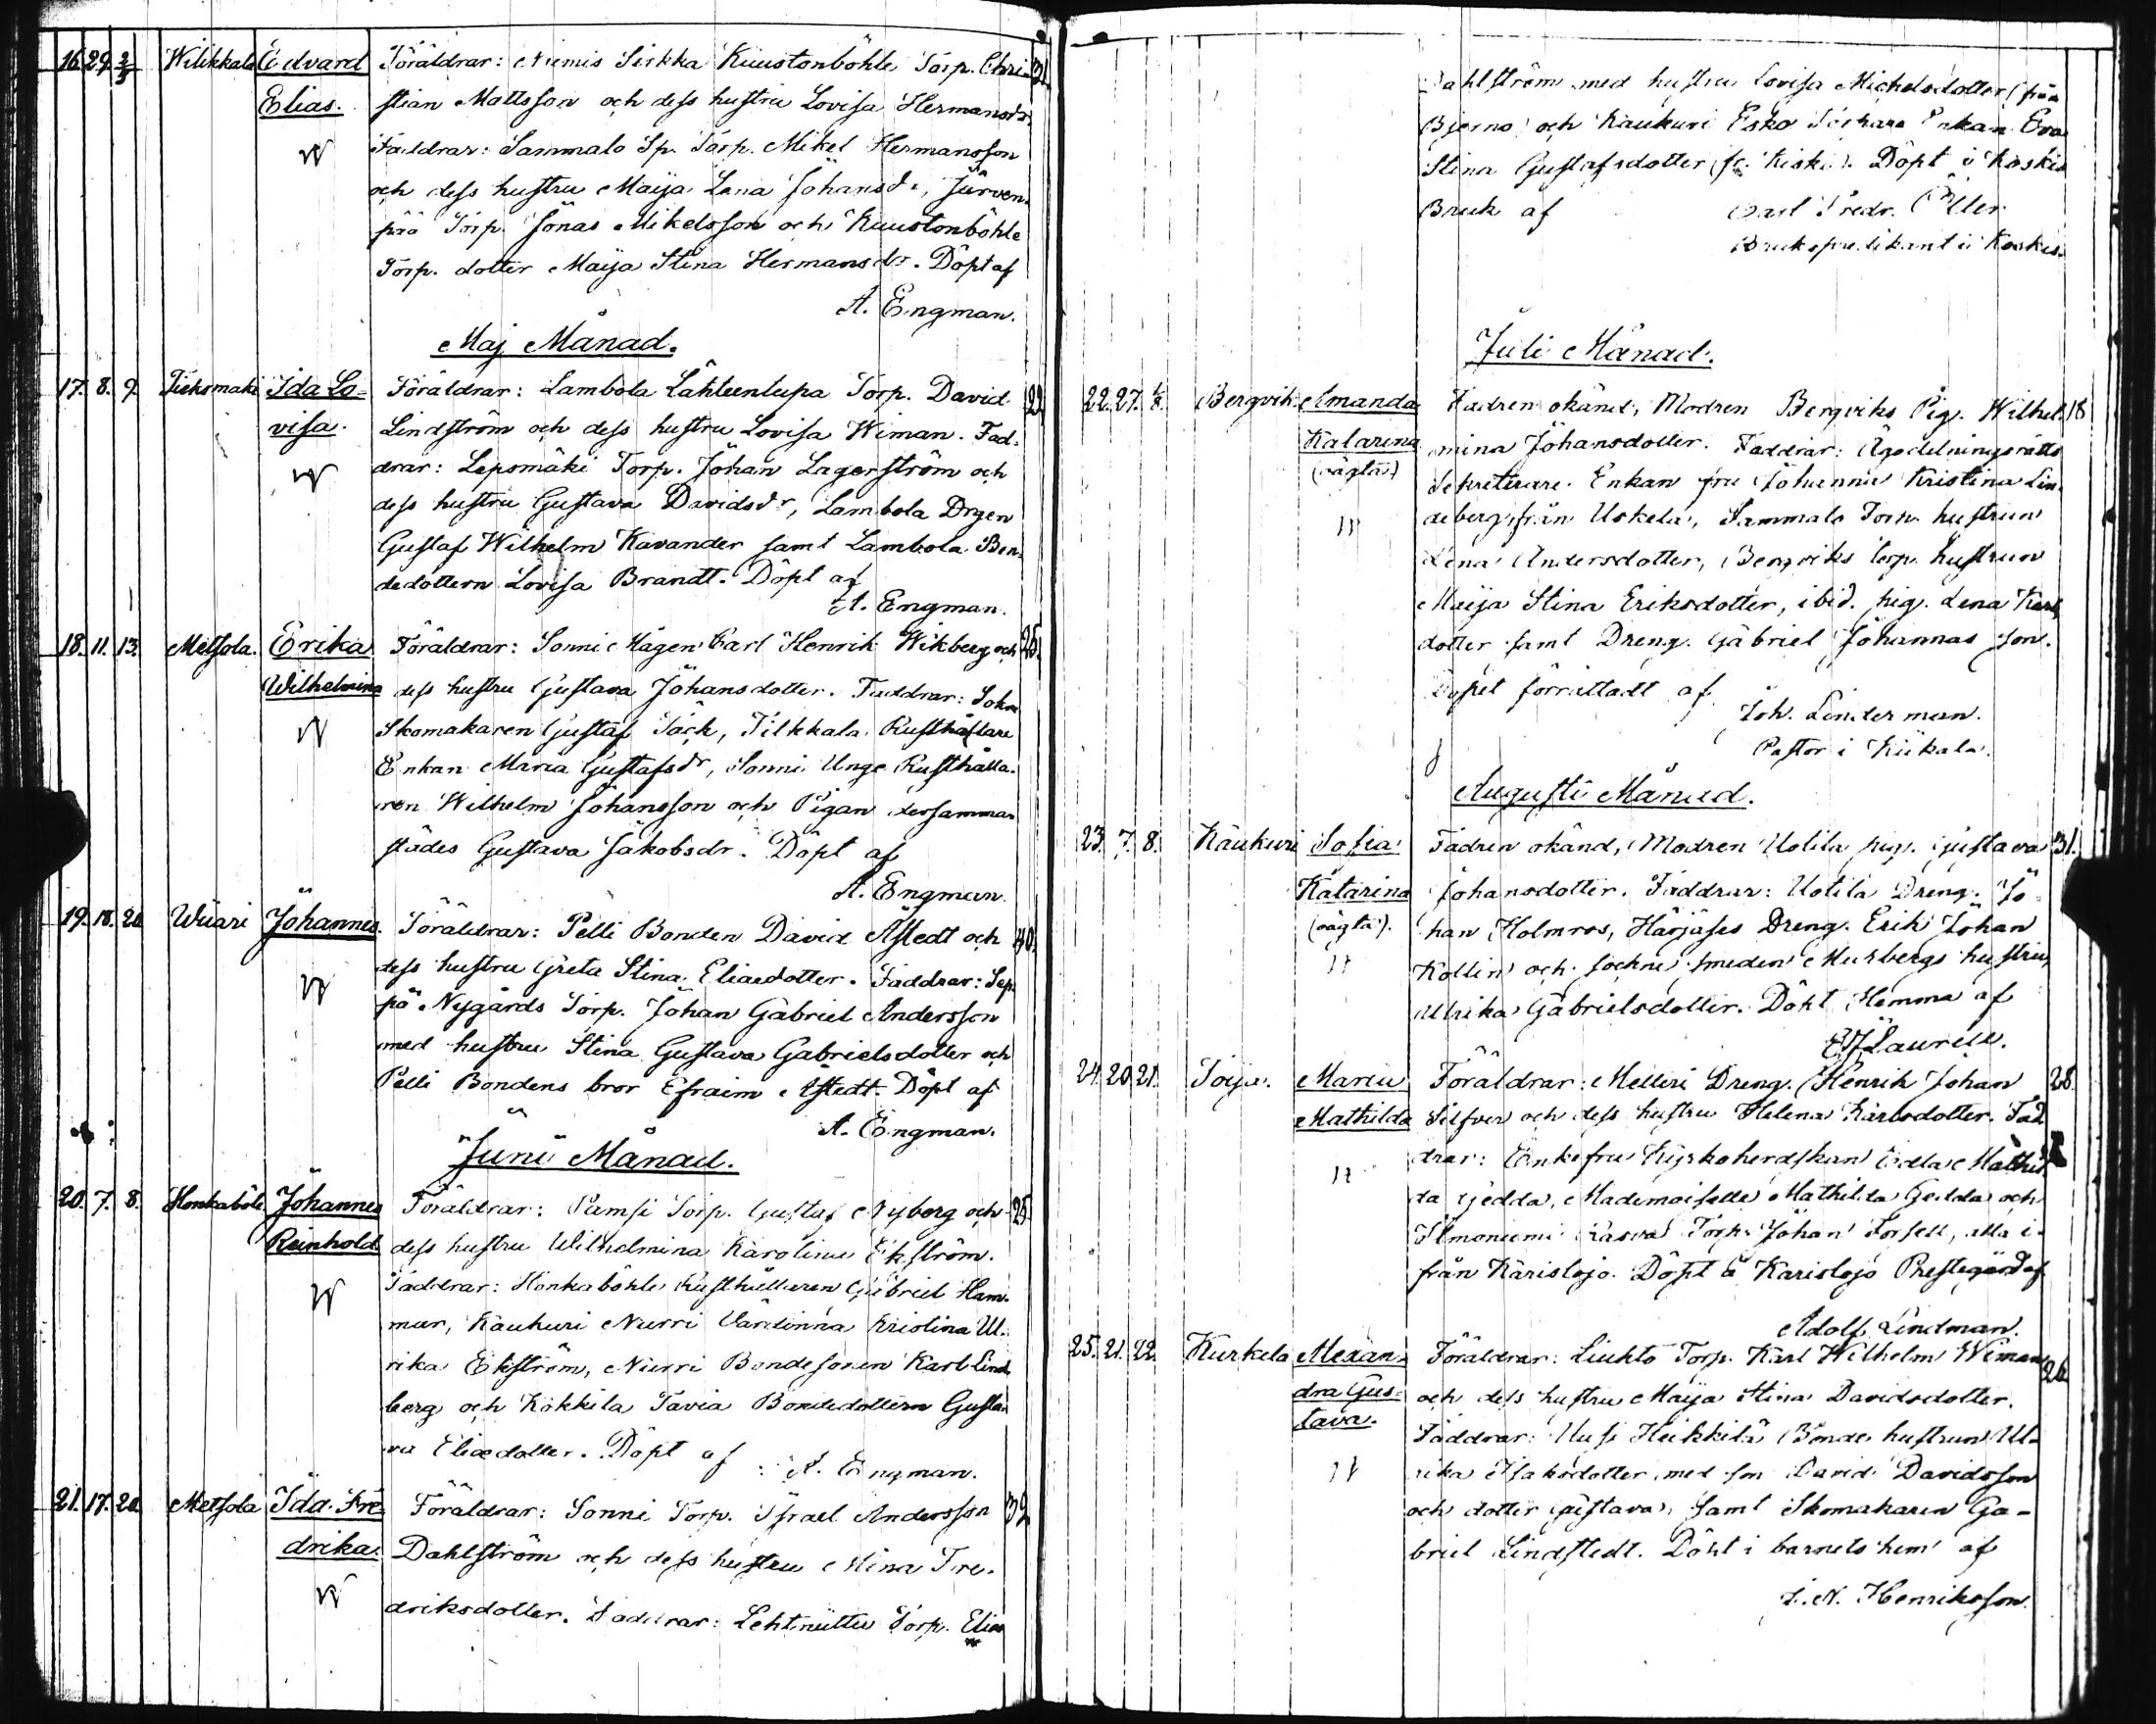 16. 29. 2/5 Wilikkala Edvard Föräldrar: Numis Sirkka Kuustonböhle Torp. Chri- 31
Elias. stian Mattsson och dess hustru Lovisa Hermansdr.
Faddrar: Sammalo Sp. Torp. Mikel Hermansson
och dess hustru Maija Lena Johansdr, Järven-
pää Torp. Jonas Mikelsson och Kuustonböhle
Torp. dotter Maija Stina Hermansdr. Döpt af
A. Engman.
Maj Månad.
17. 8. 9. Tieksmäki Ida Lo- Föräldrar: Lambola Lähteenlupa Torp. David 22
visa. Lindström och dess hustru Lovisa Wiman. Fad-
drar: Lepsmäki Torp. Johan Lagerström och
dess hustru Gustava Davidsdr, Lambola Drgen
Gustaf Wilhelm Kavander samt Lambola Bon-
dedottern Lovisa Brandt. Döpt af
A. Engman.
18. 11. 13. Metsola. Erika Föräldrar: Sonni Mågen Carl Henrik Wikberg och 25.
Wilhelmina dess hustru Gustava Johansdotter. Faddrar: Sokn
Skomakaren Gustaf Täck, Tilkkala Rusthållare
Enkan Maria Gustafsdr, Sonni Unge Rusthålla-
ren Wilhelm Johansson och Pigan dersamma-
städes Gustava Jakobsdr. Döpt af
A. Engman.
19. 18. 20 Wiiari Johannes. Föräldrar: Pelli Bonden David Åstedt och 40.
dess hustru Greta Stina Eliaedotter. Faddrar: Sep-
pä Nygårds Torp. Johan Gabriel Andersson
med hustru Stina Gustava Gabrielsdotter och
Pelli Bondens bror Efraim Åstedt. Döpt af
A. Engman.
Juni Månad.
20. 7. 8. Honkaböle Johannes Föräldrar: Pämsi Torp. Gustaf Nyberg och 25
Reinhold dess hustru Wilhelmina Karolina Ekström.
Faddrar: Honkaböhle Rusthållaren Gabriel Ham-
mar, Kaukuri Nurri Värdinna Kristina Ul-
rika Ekström, Nurri Bondesonen Karl Lind-
berg och Kokkila Tavia Bondedottern Gusta-
va Eliaedotter. Döpt af A. Engman.
21. 17. 20. Metsola Ida Fre- Föräldrar: Sonni Torp. Israel Andersson 32
drika. Dahlström och dess hustru Mina Fre-
driksdotter. Faddrar: Lehtniittu Torp. Elias
Dahlström med hustru Lovisa Michelsdotter (från
Bjerno och Kaukuri Esko Enkan Eva
Stina Gustafsdotter (fr. Kiska). Döpt i Koskis
Bruk af Carl Fredr. Öller
Brukspredikant i Koskis.
Juli Månad.
22. 27. 1/8. Bergvik Amanda Fadren okänd, Modren Bergviks Pig. Wilhel- 18
Katarina mina Johansdotter. Faddrar: Ägodelningsrätts
(oägta) Sekreterare Enkan fru Johanna Kristina Lin-
deberg från Uskela, Sammalo Torp. hustrun
Lena Andersdotter, Bergviks torp. hustrun
Maija Stina Eriksdotter, ibid. pig. Lena Karls
dotter samt Dreng. Gabriel Johannas son.
Dopet förrättadt af
Joh. Linderman.
Pastor i Kiikala.
Augusti Månad.
23. 7. 8. Kaukuri Sofia Fadren okänd, Modren Uotila pig. Gustava 31.
Katarina Johansdotter. Faddrar: Uotila Dreng. Jo-
(oägta). han Holmros, Härjäses Dreng. Erik Johan
Kollin och sockne smeden Murbergs hustru
Ulrika Gabrielsdotter. Döpt Hemma af
Laurell.
24. 20. 21. Toija. Maria Föräldrar: Melleri Dreng. Henrik Johan 28.
Mathilda Silfver och dess hustru Helena Karlsdotter. Fad-
drar: Enkefru Kyrkoherdskan Edla Mathil-
da Gedda, Mademoiselle Mathilda Gedda och
Ilmoniemi Torp. Johan Forsell, alla i-
från Karislojo. Döpt å Karislojo Prestegård af
Adolf Lindman.
25. 21. 22. Kurkela Alexan- Föräldrar: Liuhto Torp. Karl Wilhelm Wiman 26
dra Gus- och dess hustru Maija Stina Davidsdotter.
tava. Faddrar: Uusi Heikkilä Bonde hustrun Ul-
rika Isaksdotter med son David Davidsson
och dotter Gustava, samt Skomakaren Ga-
briel Lindstedt. Döpt i barnets hem af
Henriksson.